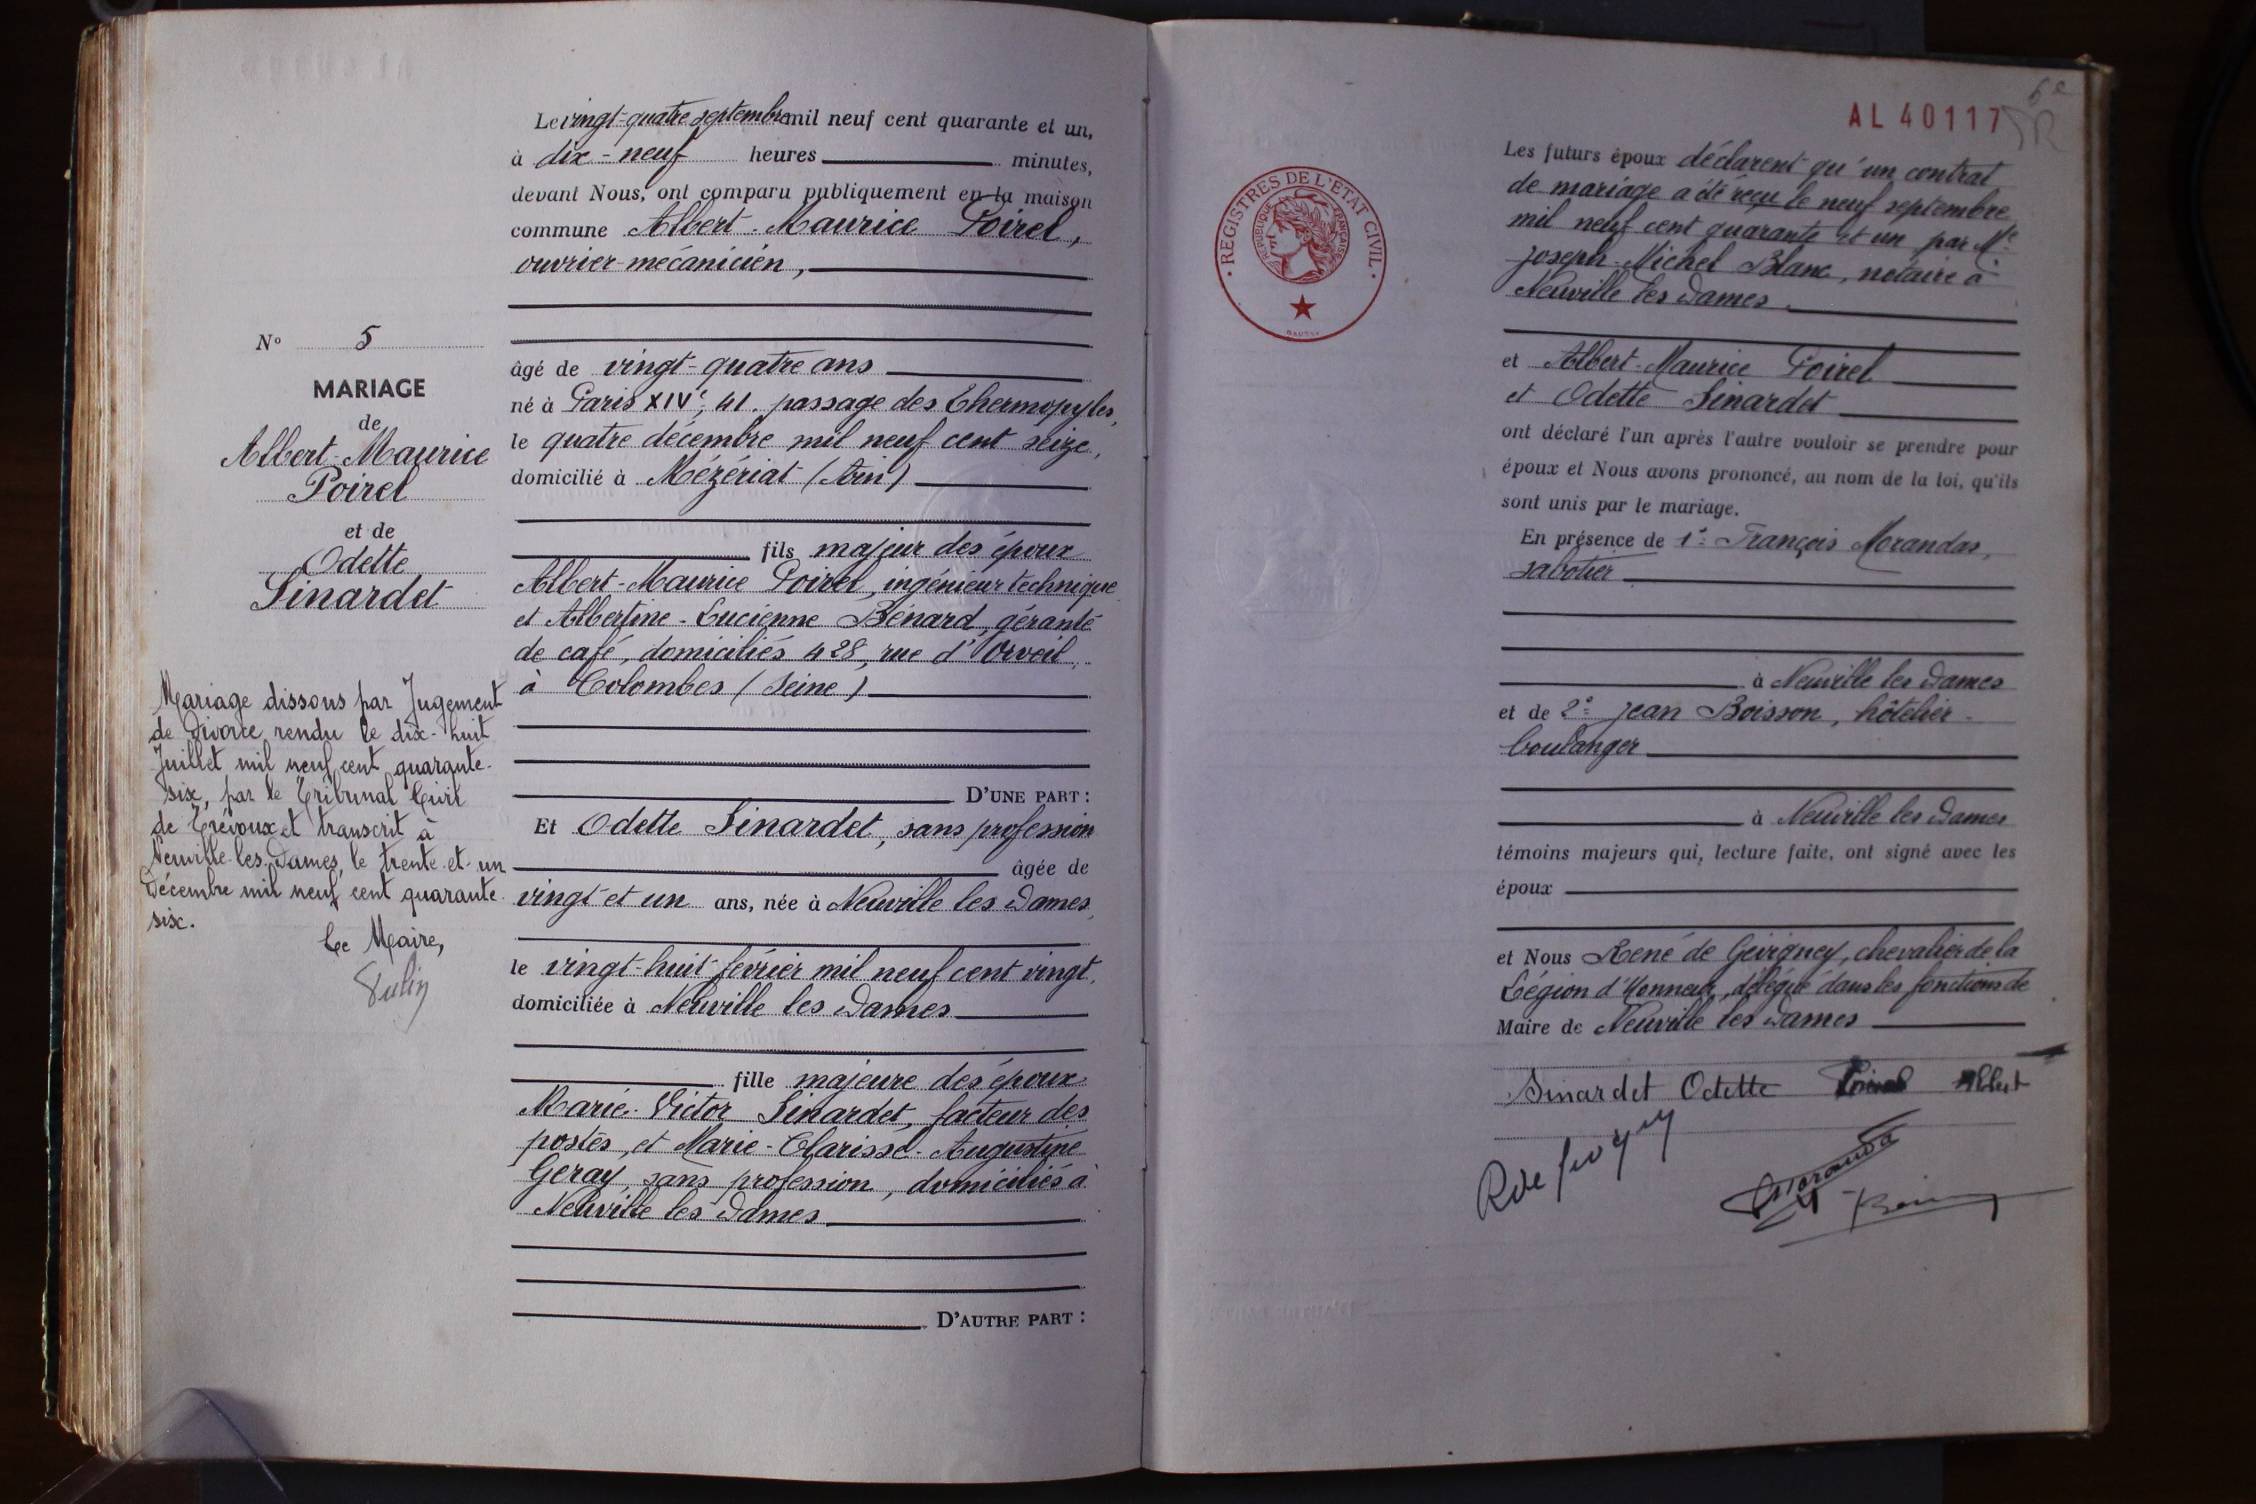 N° 5
MARIAGE
de
Albert-Maurice
Poirel
et de
Odette
Sinardet
Mariage dissous par Jugement
de Divorce rendu le dix-huit
Juillet mil neuf cent quarante-
six, par le Tribunal Civil
de Trévoux et transcrit à
Neuville-les-Dames, le trente-et-un
Décembre mil neuf cent quarante
six.
Le Maire,
Le vingt-quatre septembre mil neuf cent quarante et un,
à dix-neuf heures minutes,
devant Nous, ont comparu publiquement en la maison
commune Albert-Maurice Poirel,
ouvrier-mécanicien,
âgé de vingt-quatre ans
né à Paris XIVe, 41. passage des Thermopyles,
le quatre décembre mil neuf cent seize,
domicilié à Mézériat (Ain)
fils majeur des époux
Albert-Maurice Poirel, ingénieur technique
et Albertine-Lucienne Bénard, gérante
de café, domiciliés 428, rue d'Orveil,
à Colombes (Seine)
D'UNE PART :
Et Odette Sinardet, sans profession
âgée de
vingt et un ans, née à Neuville les Dames,
le vingt-huit février mil neuf cent vingt,
domiciliée à Neuville les Dames
fille majeure des époux
Marie-Victor Sinardet, facteur des
postes, et Marie-Clarisse-Augustine
Geray, sans profession, domiciliés à
Neuville les Dames
D'AUTRE PART :
AL 40117
REGISTRES DE L'ETAT CIVIL
REPUBLIQUE FRANÇAISE
Les futurs époux déclarent qu'un contrat
de mariage a été reçu le neuf septembre
mil neuf cent quarante et un par Me
Joseph-Michel Blanc, notaire à
Neuville les Dames
et Albert-Maurice Poirel
et Odette Sinardet
ont déclaré l'un après l'autre vouloir se prendre pour
époux et Nous avons prononcé, au nom de la loi, qu'ils
sont unis par le mariage.
En présence de 1°= François Morandas,
sabotier
à Neuville les Dames
et de 2°= Jean Boisson, hôtelier-
boulanger
à Neuville les Dames
témoins majeurs qui, lecture faite, ont signé avec les
époux
et Nous René de Gevigney, chevalier de la
Légion d'Honneur, délégué dans les fonctions de
Maire de Neuville les Dames
Sinardet Odette Poirel Albert